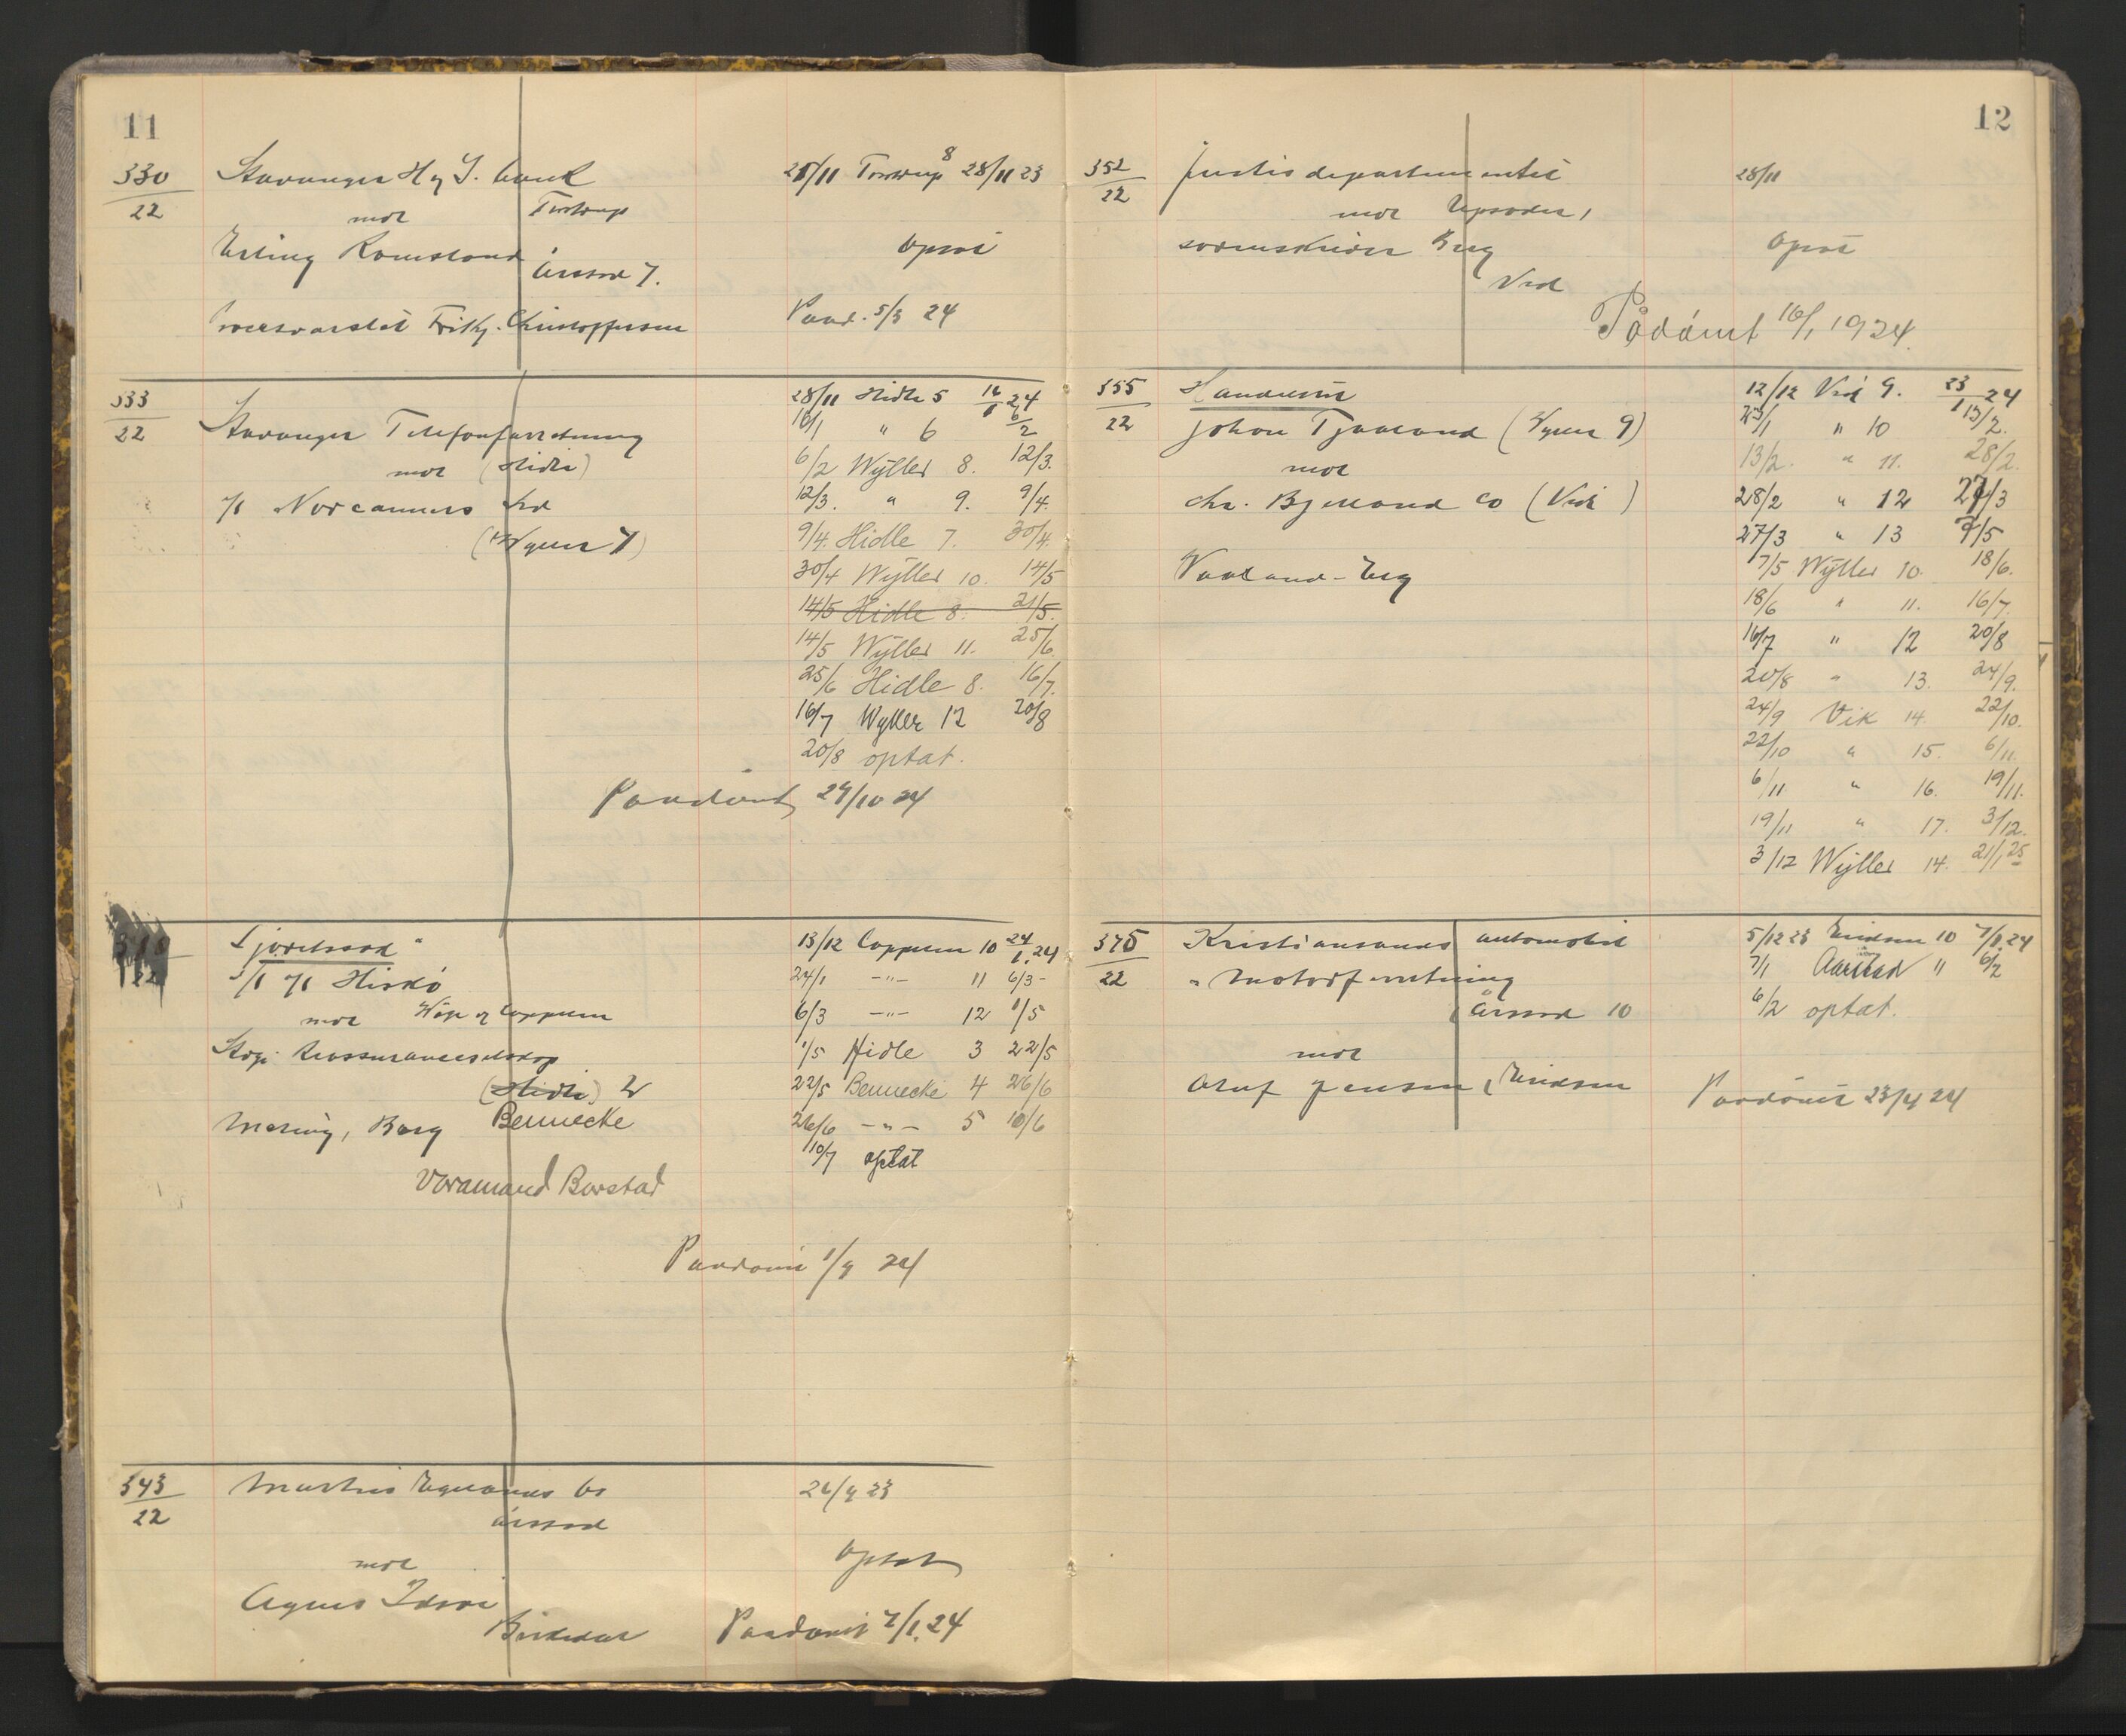 11
330
22
Stavanger H g I. bank
mot
Tostrup
Erling Romsland
Årsrod 7.
Fritj. Christoffersen
28/11 Tostrup 8 28/11 23
Optat
Paad. 5/3 24
333
22
Stavanger Telefonforretning
mot (Hidle)
A/S Norcanners Ltd
(Wyller 7)
28/11 Hidle 5 16/1 24
16/1 " 6 6/2
6/2 Wÿller 8. 12/3.
12/3. " 9. 9/4.
9/4. Hidle 7. 30/4.
30/4 Wÿller 10. 14/5
14/5 Hidle 8. 21/5.
14/5 Wÿller 11. 25/6
25/6 Hidle 8. 16/7.
16/7 Wyller 12 20/8
20/8 optat.
Paadömt 29/10 24
22
S/S A/S Hiskö
mot
(Hidle) 2
Bennecke
Borg
Varamand Borstad
13/12 Coppersen 10 24/1.24
24/1 -"- 11 6/3-
6/3 -"- 12 1/5
1/5 Hidle 3 22/5
22/5 Bennecke 4 26/6
26/6 -"- 5 10/6
10/7 optat
Paadömt 1/9 24
343
22
Egelands
Årsrod
mot
Agnes
Birkedal
26/9 23
Optat
Paadömt 7/1.24
12
352
22
Justisdepartementet
mot
sorenskriver
Vik
28/11
Optat
Pådömt 16/1 1924.
355
22
Johan Tjaaland (Wyller 9)
mot
Chr. Bjelland Co (Vik)
12/12 Vik 9. 23/1 24
23/1 " 10 13/2.
13/2. " 11. 28/2.
28/2 " 12 27/3
27/3 " 13 7/5
7/5 Wÿller 10. 18/6.
18/6 " 11. 16/7.
16/7 " 12 20/8
20/8 " 13. 24/9.
24/9 Vik 14. 22/10.
22/10 " 15. 6/11.
6/11 " 16. 19/11.
19/11 " 17. 3/12.
3/12 Wÿller 14. 21/1 25
375
22
Kristiansands automobil
- motorforretning
Årsrod 10
mot
Olaf Jensen (Eriksen
5/12 23 Eriksen 10 7/1.24
7/1 Aarstad " 6/2
6/2 optat.
Paadömt 23/4 24